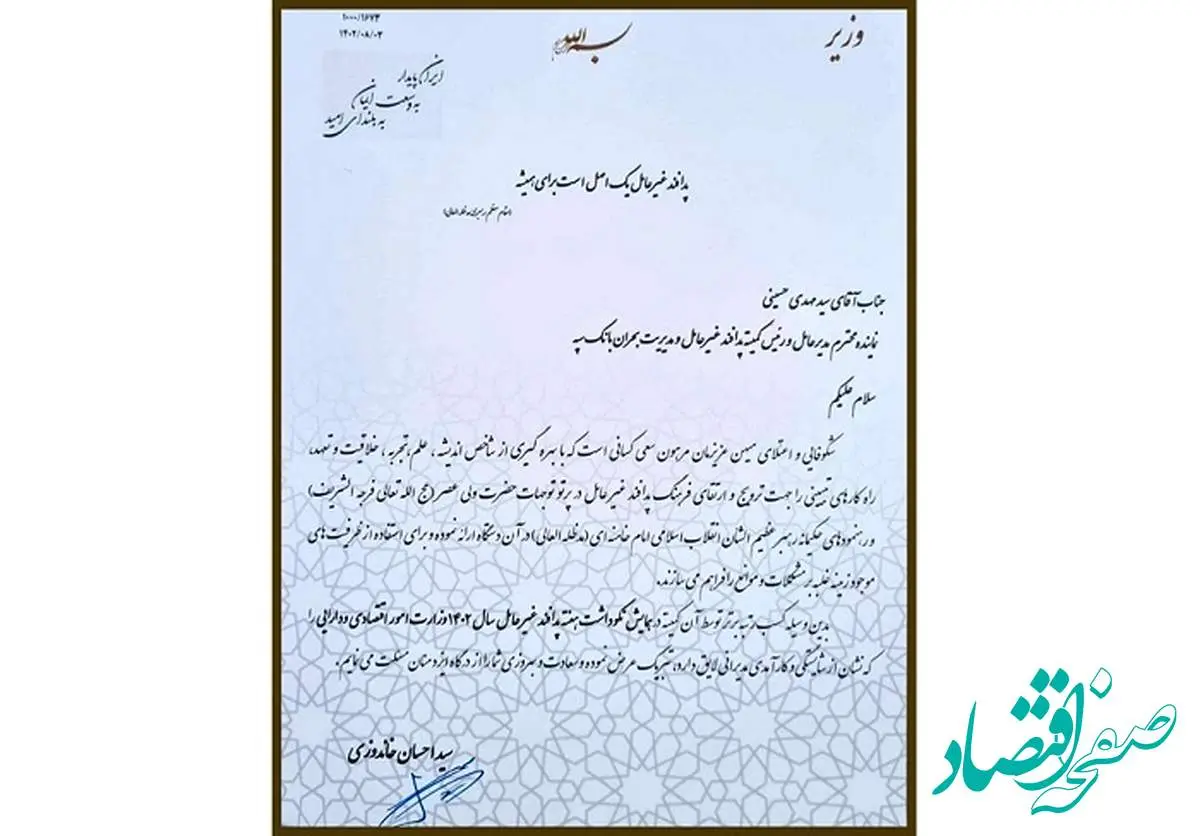 ۱۰۰۰/۱۶۷۳
۱۴۰۲/۰۸/۰۳
وزیر
بسم الله
ایران پایدار
به وسعت ایمان
به بلندای امید
پدافند غیرعامل یک اصل است برای همیشه
(مقام معظم رهبری مدظله العالی)
جناب آقای سید مهدی حسینی
نماینده محترم مدیرعامل و رئیس کمیته پدافند غیرعامل و مدیریت بحران بانک سپه
سلام علیکم
شکوفایی و اعتلای میهن عزیزمان مرهون سعی کسانی است که با بهره گیری از شاخص اندیشه، علم، تجربه، خلاقیت و تعهد،
راه کارهای تبیینی را جهت ترویج و ارتقای فرهنگ پدافند غیرعامل در پرتو توجهات حضرت ولی عصر (عج الله تعالی فرجه الشریف)
و رهنمودهای حکیمانه رهبر عظیم الشان انقلاب اسلامی امام خامنه ای (مدظله العالی) در آن دستگاه ارائه نموده و برای استفاده از ظرفیت های
موجود زمینه غلبه بر مشکلات و موانع را فراهم می سازند.
بدین وسیله کسب رتبه برتر توسط آن کمیته در همایش نکوداشت هفته پدافند غیرعامل سال ۱۴۰۲ وزارت امور اقتصادی و دارایی را
که نشان از شایستگی و کارآمدی مدیرانی لایق دارد، تبریک عرض نموده و سعادت و بهروزی شما را از درگاه ایزد منان مسئلت می نمایم.
سید احسان خاندوزی
صفحه اقتصاد